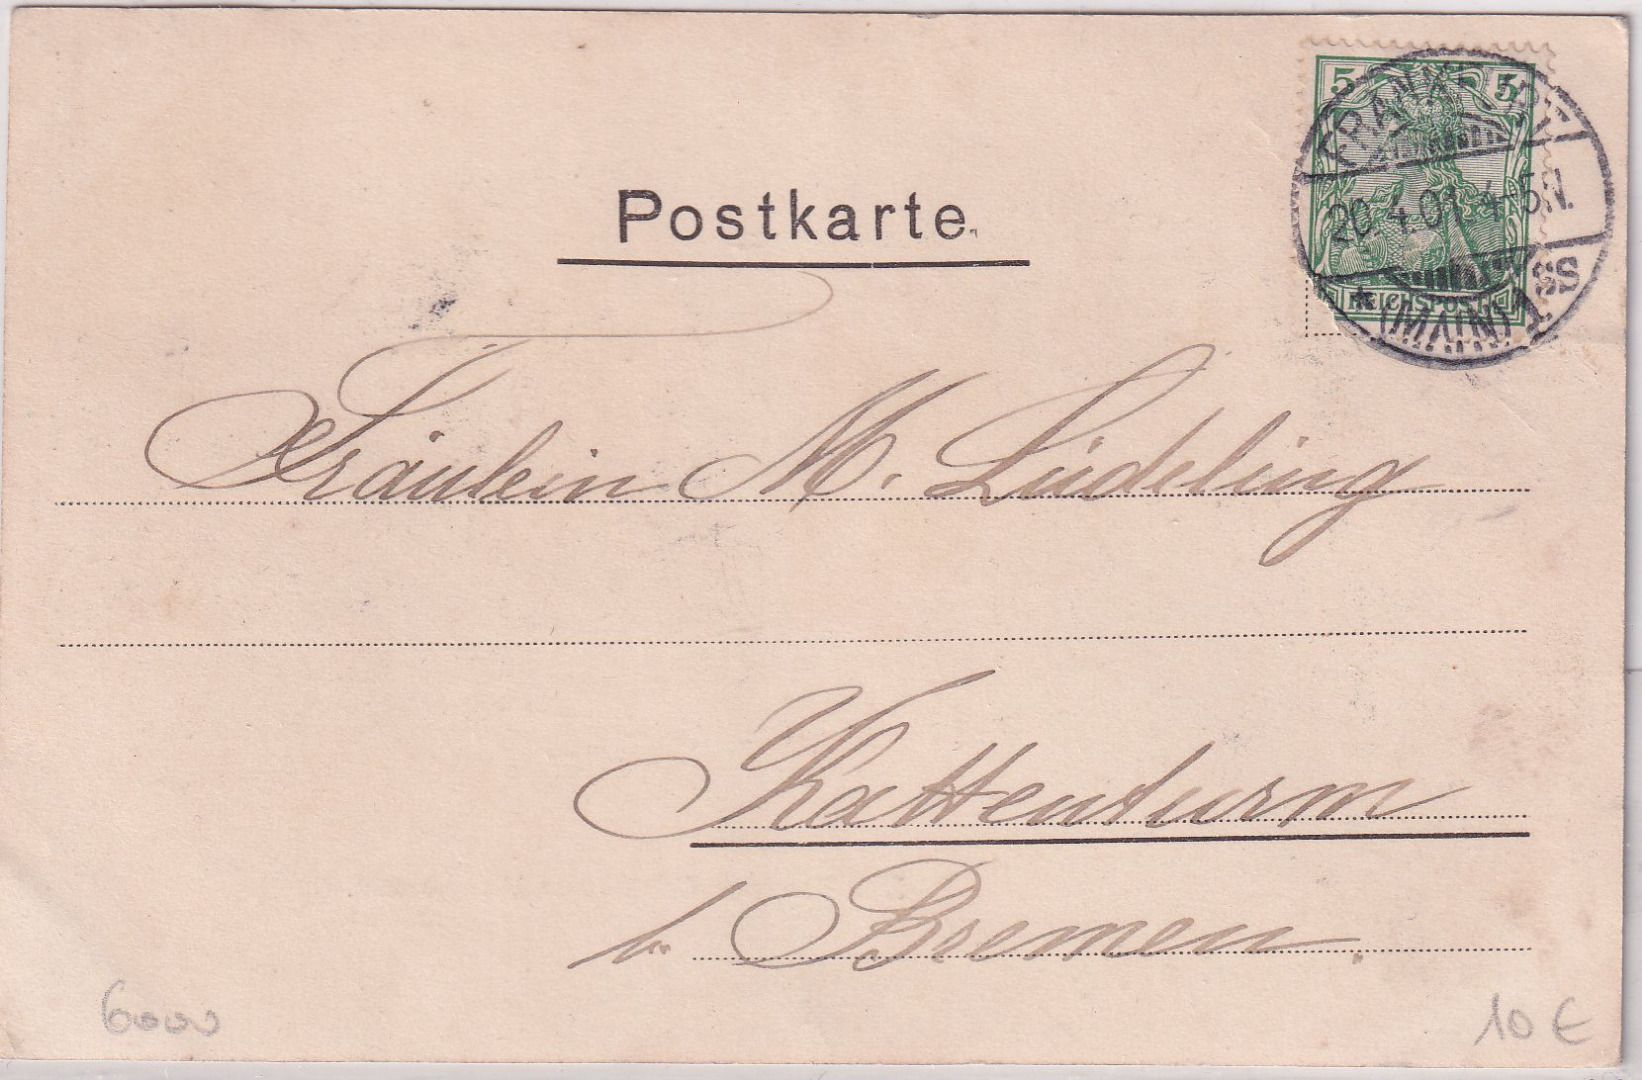 5 5
FRANKFURT
20.4.01. 4-5N.
* (MAIN) 1 SS
REICHSPOST
Postkarte.
Fräulein M. Lüdeling
Kattenturm
b. Bremen.
6000
10 €